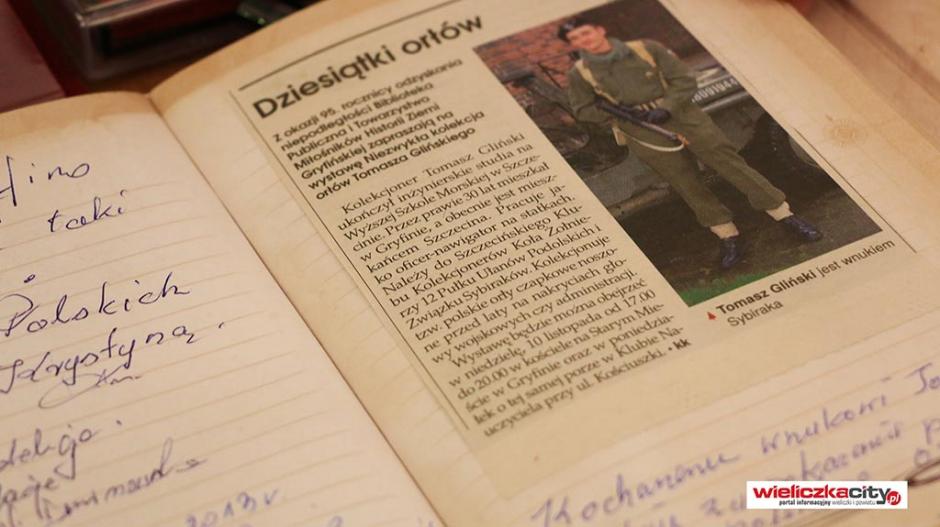 Hino
i taki
Polskich
Krystyną.
2013 r.
Dziesiątki orłów
Z okazji 95. rocznicy odzyskania
niepodległości Biblioteka
Publiczna i Towarzystwo
Miłośników Historii Ziemi
Gryfińskiej zapraszają na
wystawę Niezwykła kolekcja
orłów Tomasza Glińskiego
Kolekcjoner Tomasz Gliński
ukończył inżynierskie studia na
Wyższej Szkole Morskiej w Szcze-
cinie. Przez prawie 30 lat mieszkał
w Gryfinie, a obecnie jest miesz-
kańcem Szczecina. Pracuje ja-
ko oficer-nawigator na statkach.
Należy do Szczecińskiego Klu-
bu Kolekcjonerów Koła Żołnie-
rzy 12 Pułku Ułanów Podolskich i
Związku Sybiraków. Kolekcjonuje
tzw. polskie orły czapkowe noszo-
ne przed laty na nakryciach gło-
wy wojskowych czy administracji.
Wystawę będzie można obejrzeć
w niedzielę, 10 listopada od 17.00
do 20.00 w kościele na Starym Mie-
ście w Gryfinie oraz w poniedzia-
łek o tej samej porze w Klubie Na-
uczyciela przy ul. Kościuszki. • kk
0091944
Tomasz Gliński jest wnukiem
Sybiraka
Kochanemu wnukowi
wieliczkacity.pl
portal informacyjny wieliczki i powiatu